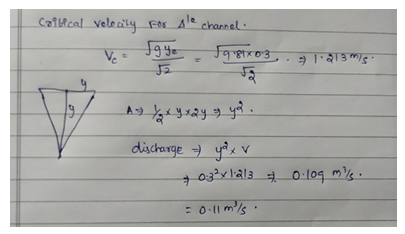 Critical velocity For Δle channel.
Vc = √gyc / √2 = √9.81×0.3 / √2 . ⇒ 1.213 m/s.
y
y
A ⇒ 1/2 × y × 2y ⇒ y².
discharge ⇒ y² × V
⇒ 0.3² × 1.213 ⇒ 0.109 m³/s.
= 0.11 m³/s.